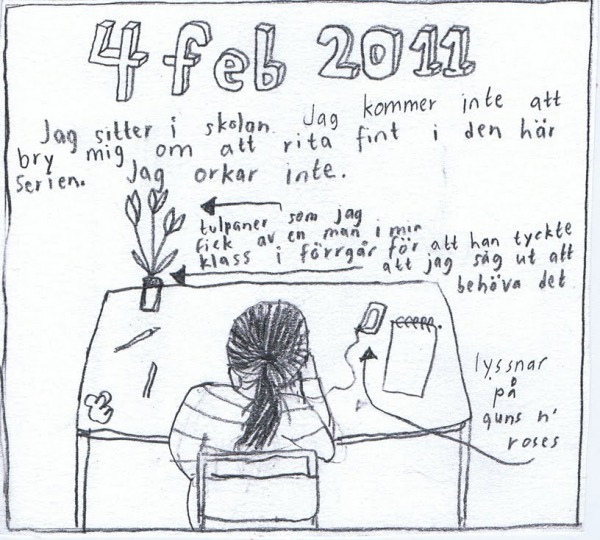 4 feb 2011
Jag sitter i skolan. Jag kommer inte att
bry mig om att rita fint i den här
serien. Jag orkar inte.
tulpaner som jag
fick av en man i min
klass i förrgår för att han tyckte
att jag såg ut att
behöva det
lyssnar
på
guns n'
roses